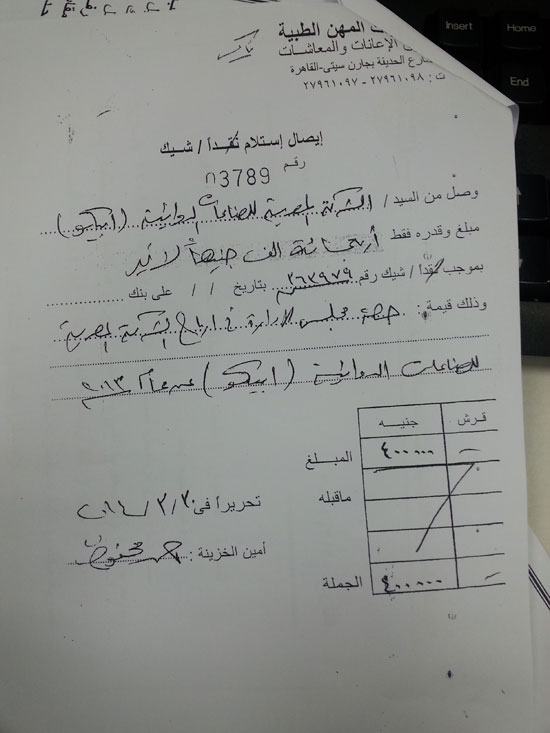 المهن الطبية
الإعانات والمعاشات
الحديقة بجاردن سيتى-القاهرة
ت : ٢٧٩٦١٠٩٨ - ٢٧٩٦١٠٩٧
إيصال إستلام نقداً / شيك
رقم
03789
وصل من السيد / الشركة المصرية للصناعات الدوائية (ايبيكو)
مبلغ وقدره فقط أربعمائة الف جنيهاً لاغير
بموجب نقداً / شيك رقم ٣٦٣٩٧٩ بتاريخ / / على بنك
وذلك قيمة : حصة مجلس الإدارة فى ارباح الشركة المصرية
للصناعات الدوائية (ايبيكو) عن عام ٢٠١٣
جنيه قرش
المبلغ ٤٠٠٠٠٠ —
ماقبله
الجملة ٤٠٠٠٠٠ —
تحريراً فى ٢٠١٤/٣/٢٠
أمين الخزينة :
Insert
Home
End